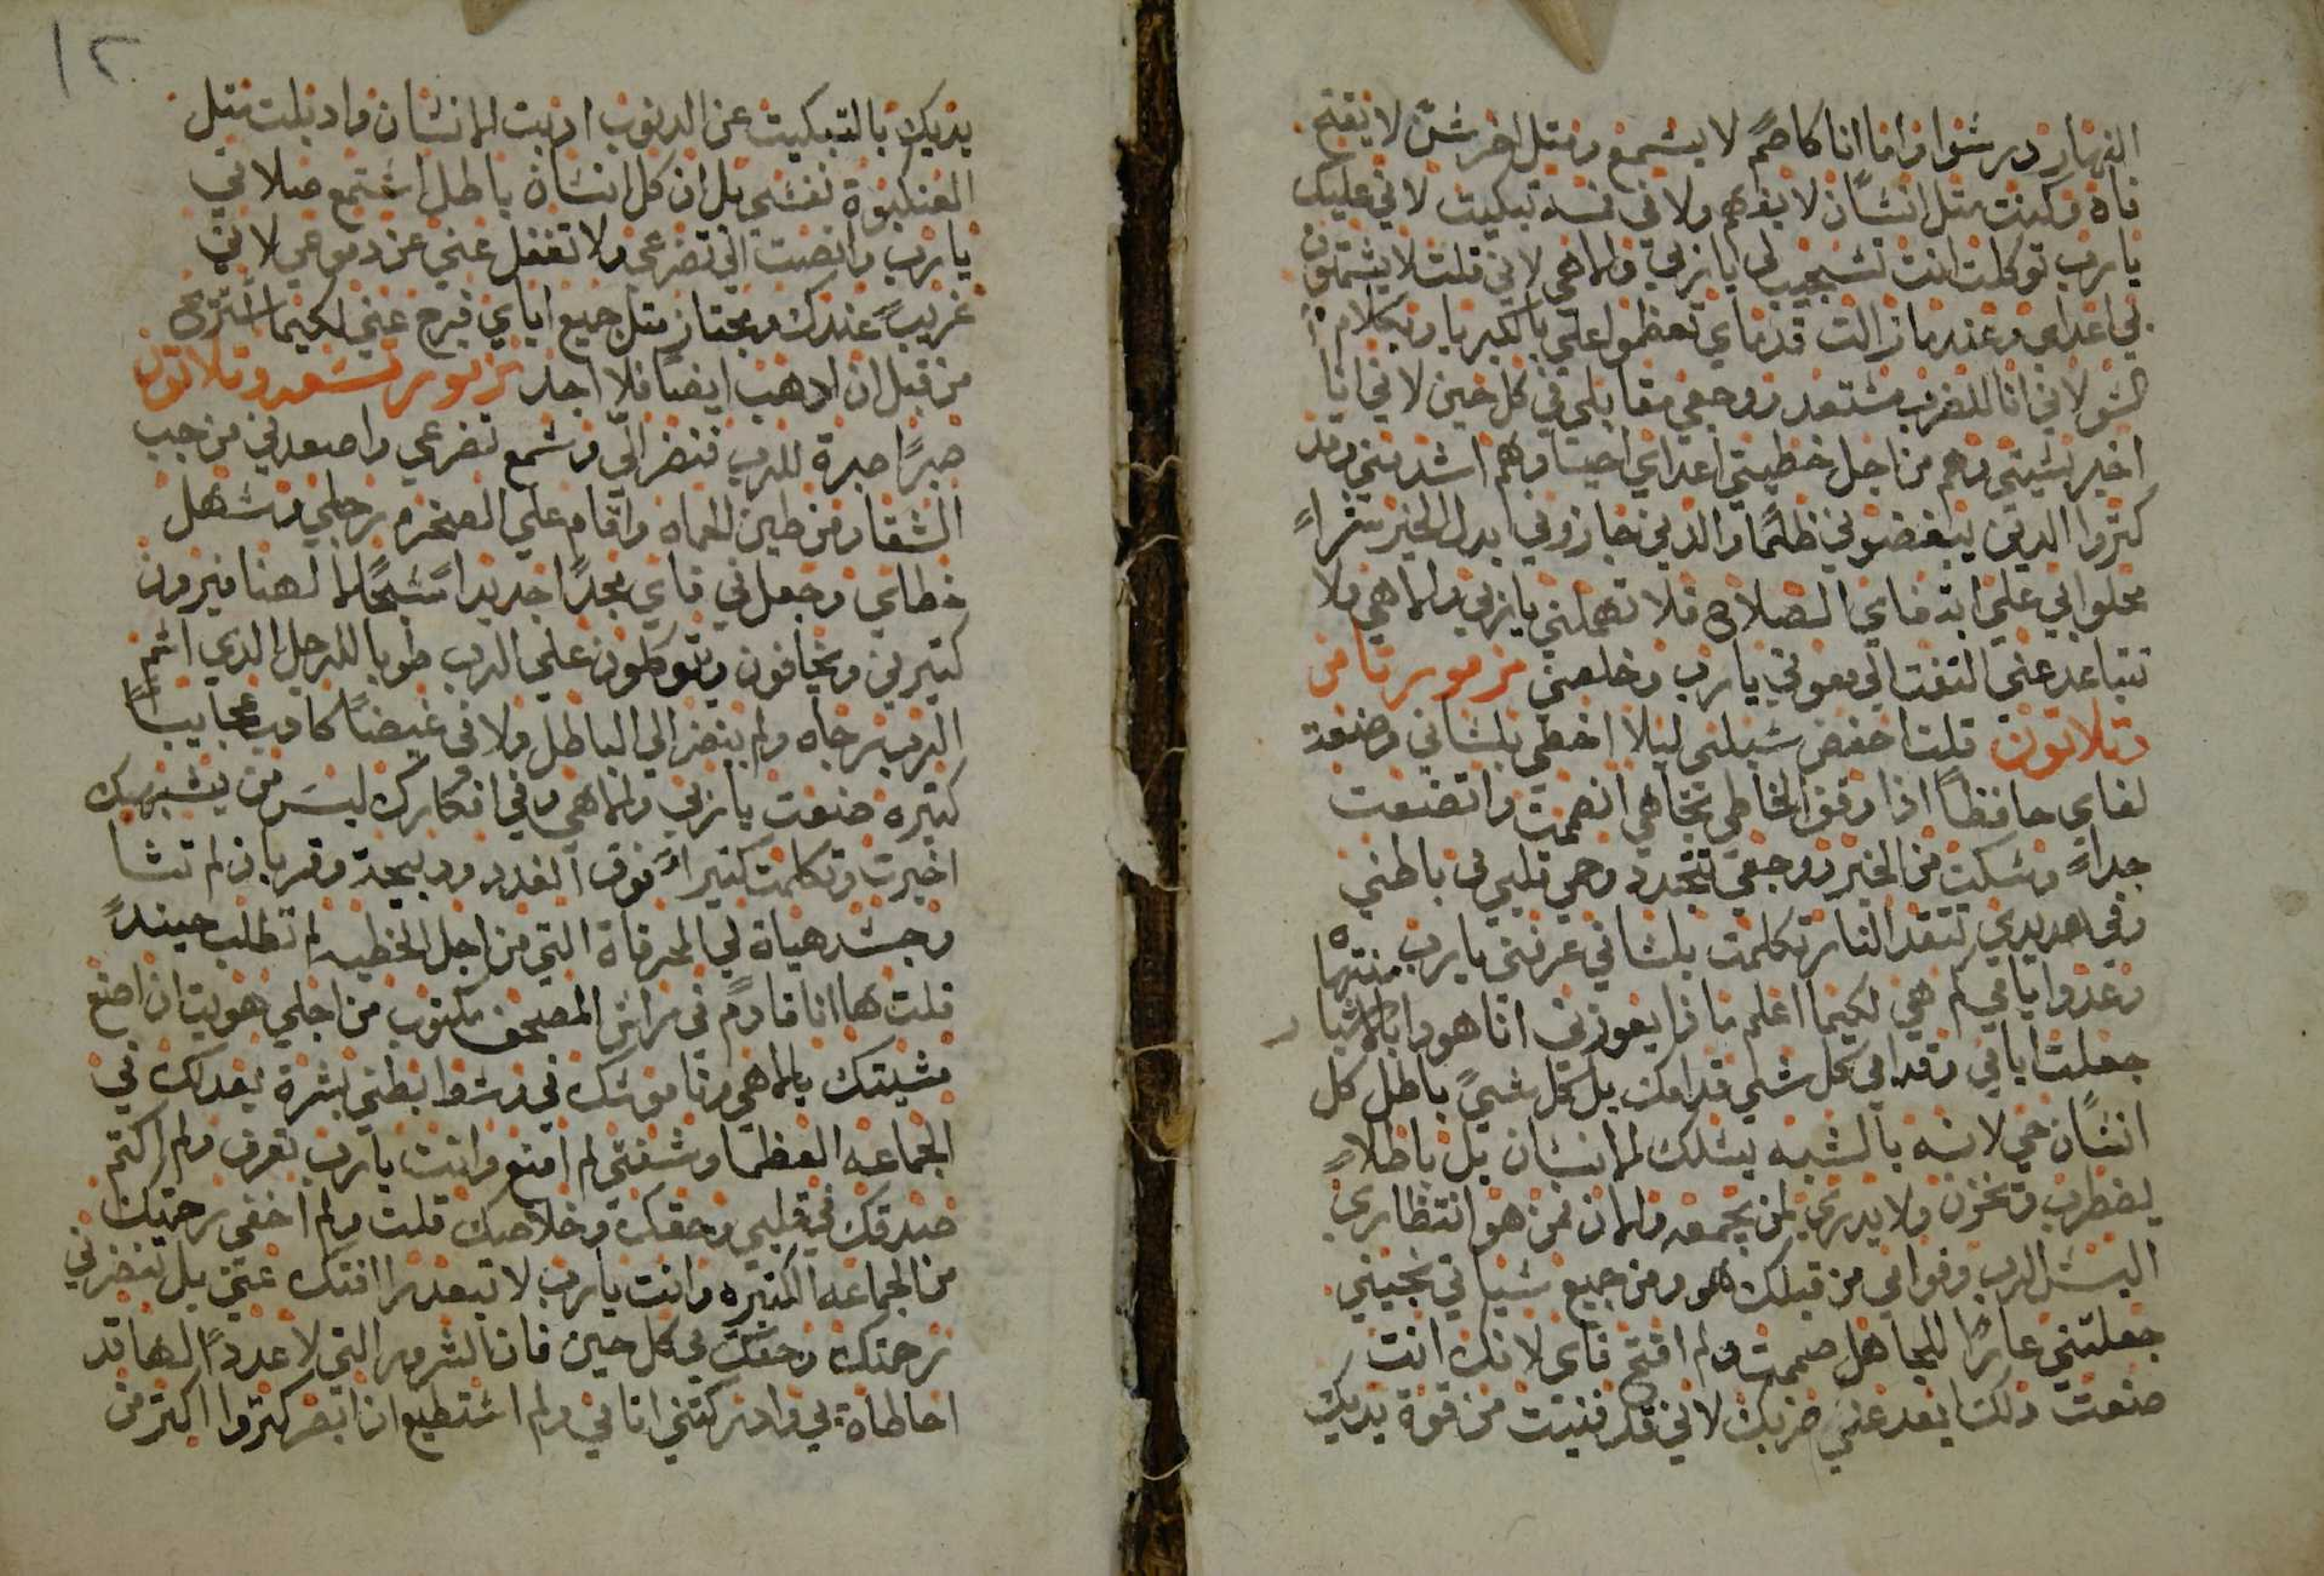 النهار درسوا واما انا كاصم لا يسمع ومتل اخرس لا يفتح
فاه وكنت متل انسان لا يفهم ولا في فمه تبكيت لاني عليك
يارب توكلت انت تستجيب لي يا ربي والاهي لاني قلت لا يشمتون
بي اعداي وعند ما زالت قدماي تعظموا علي بالكبريا وبكلام
السو لاني انا للضرب مستعد ووجعي مقابلي في كل حين لاني انا
اخبر بسيتي وهم من اجل خطيتي اعداي احيا وهم اشد مني وقد
كتروا الدين يبغضوني ظلمًا والدين جازوني بدل الخير شراً
محلوا بي علي ابتغاي الصلاح فلا تهملني يا ربي والاهي ولا
تتباعد عني التفت الي معونتي يارب وخلصني مزمور تامن
وتلاتون قلت احفض سبلي ليلا اخطي بلساني وضعة
لفاي حافظاً اذا وقف الخاطي تجاهي انصمت واتضعت
جداً وسكت من الخير ووجعي تجدد وحمي قلبي في باطني
وفي هديدي تتقد النار تكلمت بلساني عرفني يارب منتهاه
وعدد ايامي كم هي لكيما اعلم ماذا يعوزني انا هودا بالاشبار
جعلت ايامي وقدامي كل شي قدامك بل كل شيً باطل كل
انسان حي لانه بالشبه يسلك الانسان بل باطلاً
يضطرب وتخزن ولا يدري لمن يجمعه والان من هو انتظاري
اليس الرب وقوامي من قبلك هو ومن جميع سياتي نجيني
جعلتني عارًا للجاهل صممت ولم افتح فاي لانك انت
صنعت دلك ابعد عني ضربك لاني قد فنيت من قوة يديك
١٢
يديك بالتبكيت عن الدنوب ادبت الانسان وادبلت متل
العنكبوة نفسي بل ان كل انسان باطل استمع صلاتي
يارب وانصت الي تضرعي ولا تغفل عني عن دموعي لاني
غريب عندك ومجتاز متل جميع اباي فرج عني لكيما استريح
من قبل ان ادهب ايضا فلا اجد مزمور تسعه وتلاتون
صبرًا صبرة للرب فنضر الّي وسمع تضرعي واصعدني من جب
الشقا ومن طين الحماه واقام علي الصخره رجلي وسهل
خطاي وجعل في فاي مجدًا جديدا تسبحًا لالهنا فيرون
كتيرين ويخافون ويتوكلون علي الرب طوبا للرجل الدي اسم
الرب رجاه ولم ينضر الي الباطل ولا في غيضاً كادب عجايباً
كتيره صنعت يا ربي والاهي وفي افكارك ليس من يشبهك
اخبرت وتكلمت كتيراً فوق العدد ودبيحة وقربان لم تشا
وجسد هيات لي المحرقاة التي من اجل الخطيه لم تطلب حيندً
قلت ها انا قادم في راس المصحف مكتوب من اجلي هويت ان اصنع
مشيتك يالاهي وناموسك في وسط ابطني بشرة بعدلك في
الجماعه العظما وشفتي لم امنع وانت يارب تعرف ولم اكتم
صدقك في قلبي وحقك وخلاصك قلت ولم اخفي رحمتك
من الجماعه الكتيره وانت يارب لا تبعد رافتك عني بل تنضرني
رحمتك وحقك في كل حين فان الشرور التي لا عدداً لها قد
احاطاة بي وادركتني اتامي ولم استطيع ان ابصر كتروا اكتر من